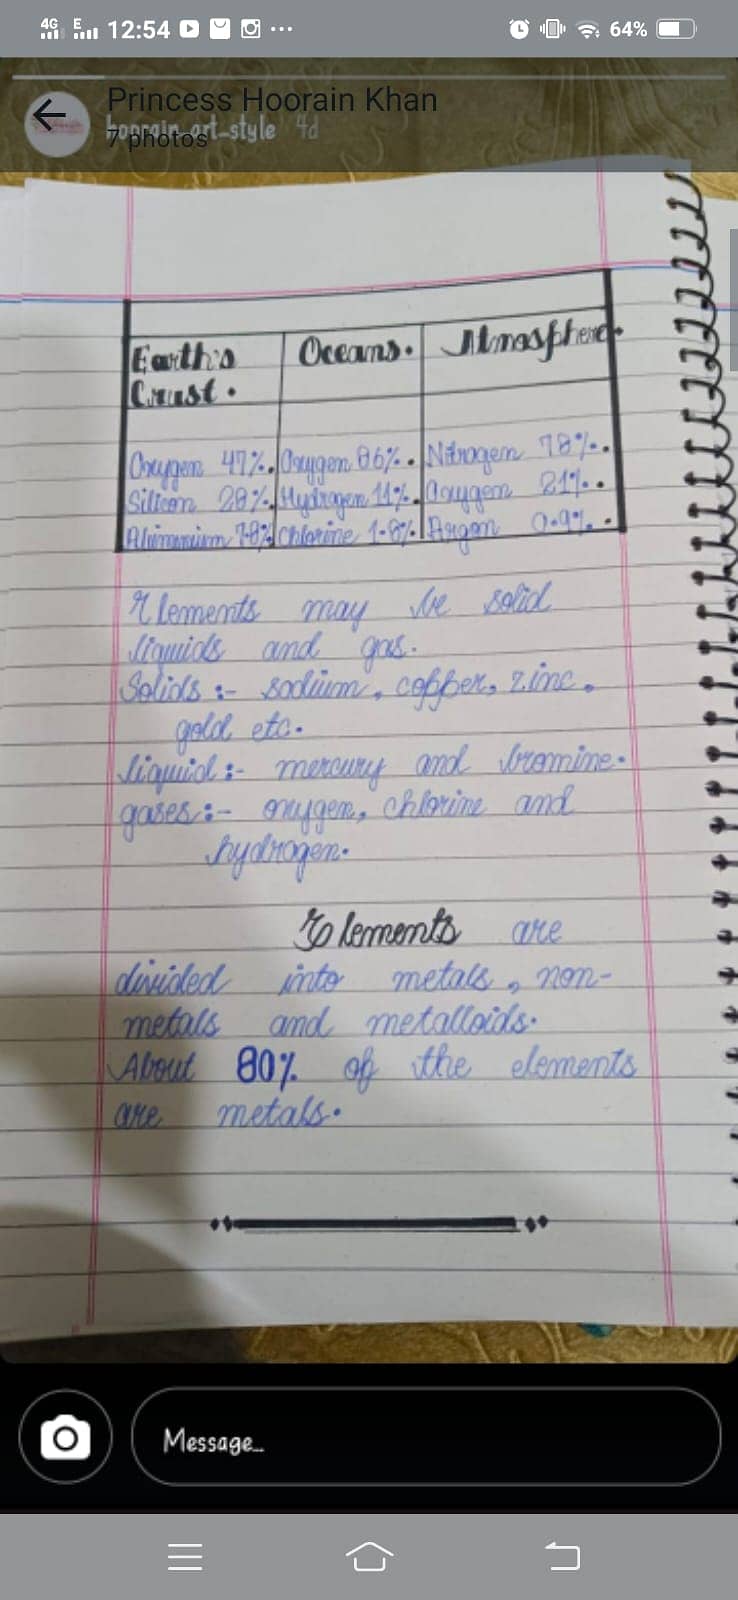 4G E 12:54 ... 64%
Princess Hoorain Khan
hoorain_art_style 4d
7 photos
Earth's Crust. Oceans. Atmosphere.
Oxygen 47%. Oxygen 86%. Nitrogen 78%.
Silicon 28%. Hydrogen 11%. Oxygen 21%.
Aluminium 7.8% Chlorine 1.8%. Argon 0.9%.
Elements may be solid
liquids and gas.
Solids :- sodium, copper, zinc,
gold etc.
liquid :- mercury and bromine.
gases :- oxygen, chlorine and
hydrogen.
Elements are
divided into metals, non-
metals and metalloids.
About 80% of the elements
are metals.
Message...